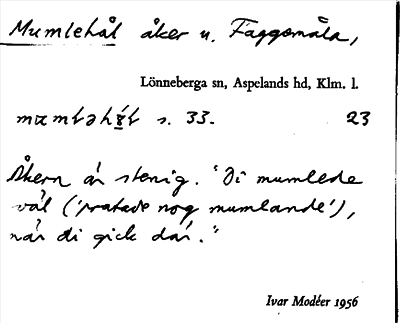 Mumlehål åker u. Faggemåla,
Lönneberga sn, Aspelands hd, Klm. l.
s. 33. 23
Åkern är stenig. "Di mumlede
väl ('pratade nog mumlande'),
när di gick där."
Ivar Modéer 1956